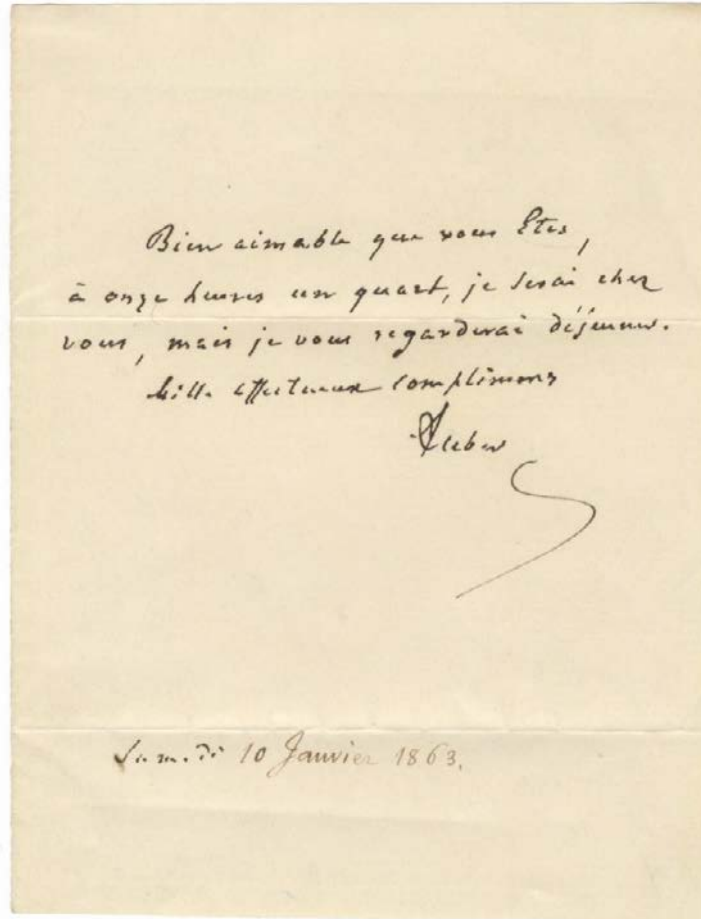 Bien aimable que vous Etes,
à onze heures un quart, je serai chez
vous, mais je vous regarderai déjeuner.
Mille affectueux complimens
Auber
Samedi 10 Janvier 1863.